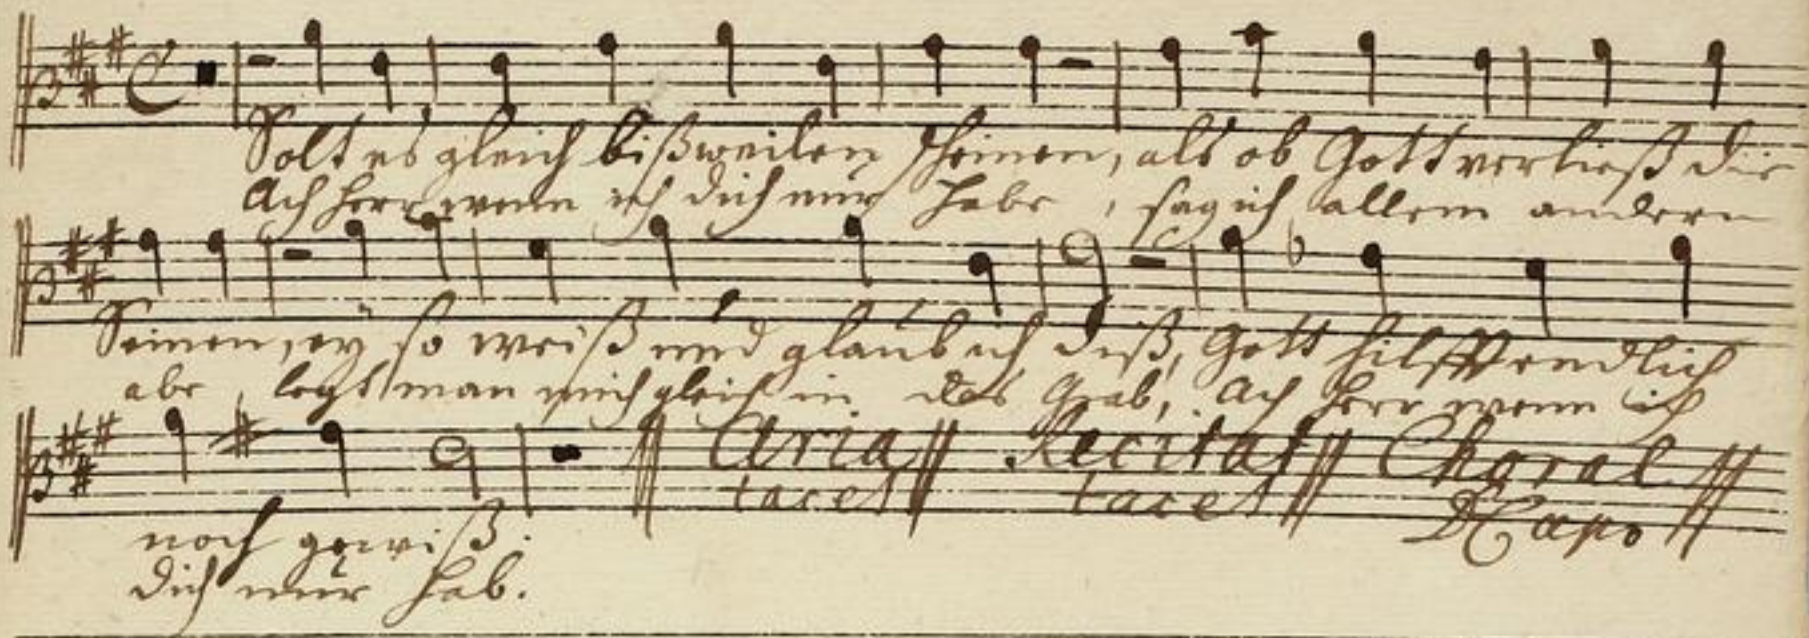 Solt es gleich bißweilen scheinen, als ob Gott verließ die
Ach Herr wenn ich dich nur habe, sag ich allem andern
Seinen, ey so weiß und glaub ich diß, Gott hilfft endlich
abe, legt man mich gleich in das Grab, Ach Herr wenn ich
Aria Recitat Choral
tacet tacet DCapo
noch gewiß.
dich nur hab.